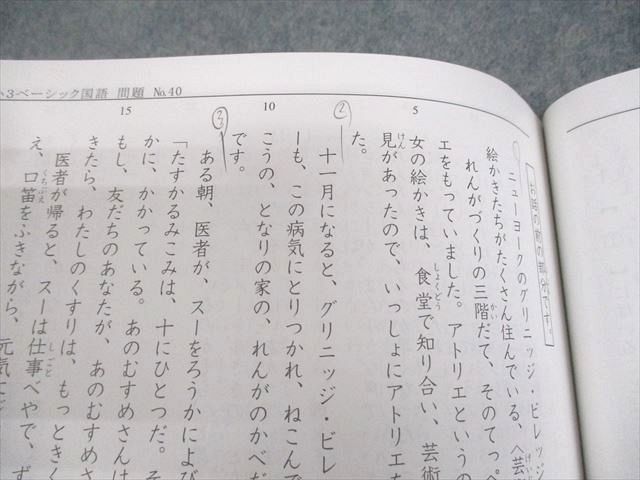 小3ベーシック国語 問題 No.40
5
10
15
お話の前の部分です。
ニューヨークのグリニッジ・ビレッジ
絵かきたちがたくさん住んでいる、〈芸
れんがづくりの三階だて、そのてっぺ
エをもっていました。アトリエというの
女の絵かきは、食堂で知り合い、芸術
見があったので、いっしょにアトリエを
た。
②
十一月になると、グリニッジ・ビレ
ーも、この病気にとりつかれ、ねこんで
こうの、となりの家の、れんがのかべだ
です。
③
ある朝、医者が、スーをろうかによび
「たすかるみこみは、十にひとつだ。そ
かに、かかっている。あのむすめさんは
もし、友だちのあなたが、あのむすめさ
きたら、わたしのくすりは、もっときく
医者が帰ると、スーは仕事べやで、ず
え、口笛をふきながら、元気に